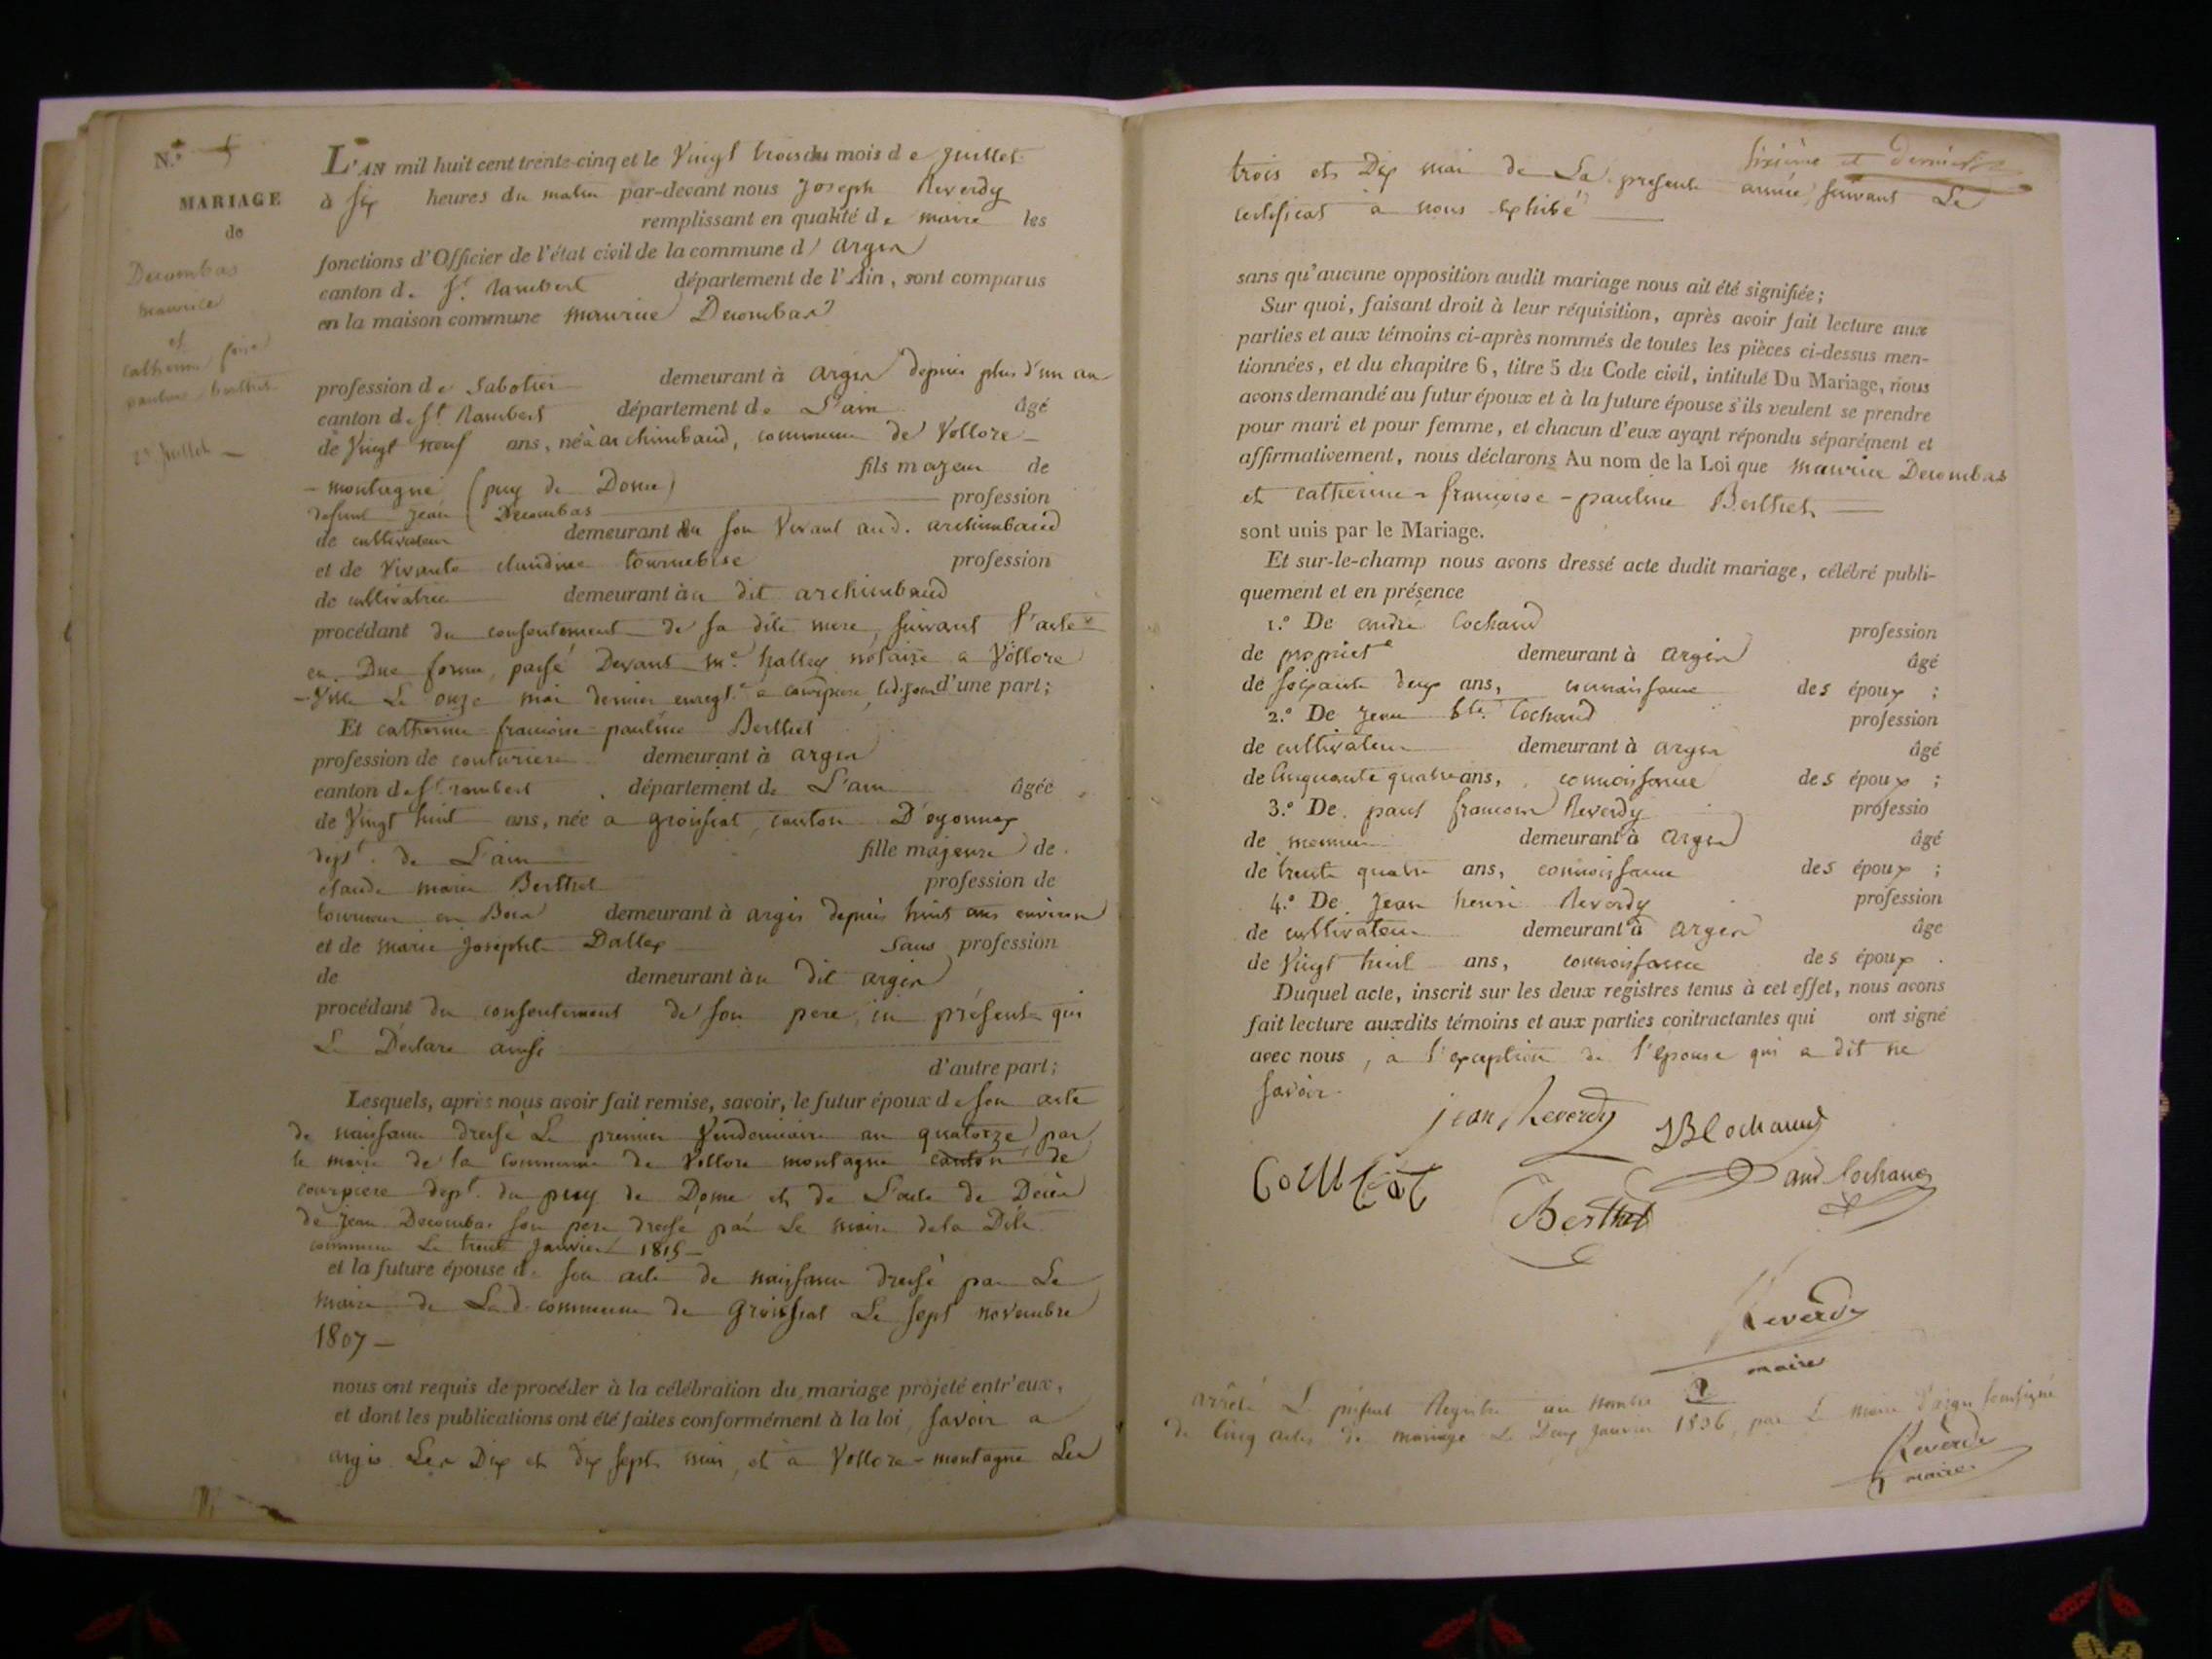 N.° 5
MARIAGE
de
Decombas
maurice
et
Catherine fçoise
pauline berthet
23 juillet
L'AN mil huit cent trente-cinq et le Vingt trois du mois de juillet
à six heures du matin par-devant nous joseph Reverdy
remplissant en qualité de maire les
fonctions d'Officier de l'état civil de la commune d'argis
canton de St. Rambert département de l'Ain, sont comparus
en la maison commune maurice Decombas
profession de Sabotier demeurant à argis depuis plus d'un an
canton de St Rambert département de L'ain âgé
de Vingt neuf ans, né à archimbaud, commune de Vollore-
-montagne (puy de Dome) fils majeur de
defunt jean Decombas profession
de cultivateur demeurant en son Vivant aud. archimbaud
et de Vivante claudine tournebise profession
de cultivatrice demeurant au dit archimbaud
procédant du consentement de sa dite mere, suivant l'acte
en Due forme, passé Devant me. hallex notaire a Vollore
-Ville Le onze mai dernier enregt.é a courpiere, led. jour d'une part;
Et catherine-francoise-pauline Berthet
profession de couturiere demeurant à argis
canton de St. rambert département de L'ain âgée
de Vingt huit ans, née a groissiat, canton D'oyonnax
dept. de L'ain fille majeure de
claude marie Berthet profession de
tourneur en Bois demeurant à argis depuis huit ans environ
et de marie josephte Dallex Sans profession
de demeurant au dit argis
procédant du consentement de son pere, ici présent qui
Le Déclare ainsi
d'autre part;
Lesquels, après nous avoir fait remise, savoir, le futur époux de son acte
de naissance dressé Le premier Vendemiaire an quatorze par
le maire de la commune de Vollore montagne canton de
courpiere dept. du puy de Dome et de L'acte de Décès
de jean Decombas son pere dressé par Le maire de la Dite
commune Le trente janvier 1815-
et la future épouse de son acte de naissance dressé par Le
maire de Lad. commune de Groissiat Le sept novembre
1807-
nous ont requis de procéder à la célébration du mariage projeté entr'eux,
et dont les publications ont été faites conformément à la loi, savoir a
argis Les Dix et dix sept mai, et a Vollore-montagne Les
Sixième et dernier
trois et Dix mai de La presente année, suivant Le
certificat a nous exhibé
sans qu'aucune opposition audit mariage nous ait été signifiée;
Sur quoi, faisant droit à leur réquisition, après avoir fait lecture aux
parties et aux témoins ci-après nommés de toutes les pièces ci-dessus men-
tionnées, et du chapitre 6, titre 5 du Code civil, intitulé Du Mariage, nous
avons demandé au futur époux et à la future épouse s'ils veulent se prendre
pour mari et pour femme, et chacun d'eux ayant répondu séparément et
affirmativement, nous déclarons Au nom de la Loi que maurice Decombas
et catherine-françoise-pauline Berthet
sont unis par le Mariage.
Et sur-le-champ nous avons dressé acte dudit mariage, célébré publi-
quement et en présence
1.° De andré Cochaud profession
de propriete demeurant à argis âgé
de soixante deux ans, connoissance des époux;
2.° De jean bte. Cochaud profession
de cultivateur demeurant à argis âgé
de Cinquante quatre ans, connoissance des époux;
3.° De paul francois Reverdy professio
de demeurant à argis âgé
de trente quatre ans, connoissance des époux;
4.° De jean henri Reverdy profession
de cultivateur demeurant à argis âge
de Vingt huit ans, connoissance des époux.
Duquel acte, inscrit sur les deux registres tenus à cet effet, nous avons
fait lecture auxdits témoins et aux parties contractantes qui ont signé
avec nous, a l'exception de l'épouse qui a dit ne
savoir.
jean Reverdy JB Cochaud
Berthet and Cochaud
Reverdy
maire
arrêté Le présent Registre au nombre
de Cinq actes de mariage Le Deux janvier 1836, par Le maire d'argis soussigné
Reverdy
maire